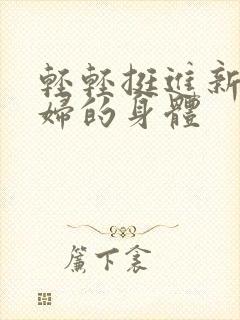 輕輕挺進新
婦的身體
簾下衾